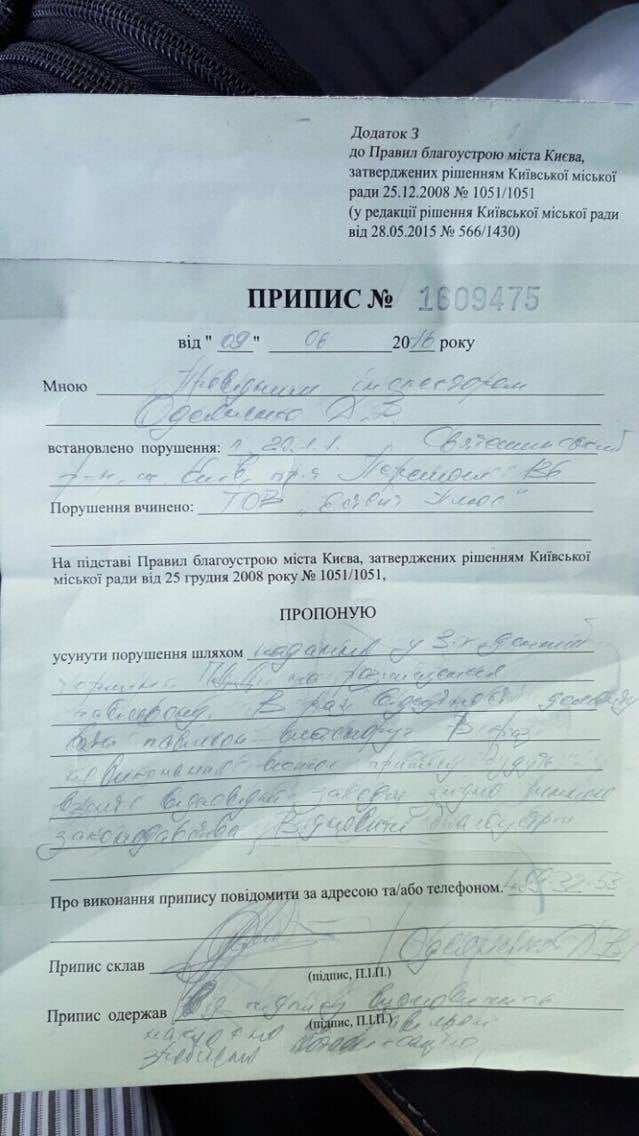 Додаток 3
до Правил благоустрою міста Києва,
затверджених рішенням Київської міської
ради 25.12.2008 № 1051/1051
(у редакції рішення Київської міської ради
від 28.05.2015 № 566/1430)
ПРИПИС № 1609475
від " 09 " 06 2016 року
Мною Провідним інспектором
встановлено порушення: п. 20.1.1. Святошинський
р-н, м. Київ, пр-т Перемоги
Порушення вчинено: ТОВ " Плюс"
На підставі Правил благоустрою міста Києва, затверджених рішенням Київської
міської ради від 25 грудня 2008 року № 1051/1051,
ПРОПОНУЮ
усунути порушення шляхом надання у 3-х денний
термін на розміщення
В разі відсутності
В раз
невиконання припису будуть
вжиті відповідні заходи згідно чинного
законодавства. Відновити благоустрій
Про виконання припису повідомити за адресою та/або телефоном. 489-32-53
Припис склав
(підпис, П.І.П.)
Припис одержав Від підпису відмовились
(підпис, П.І.П.)
наклеєно
зроблена